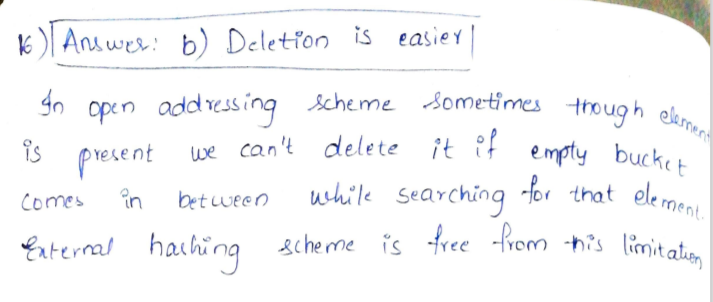 16) Answer: b) Deletion is easier
In open addressing scheme sometimes though element
is present we can't delete it if empty bucket
comes in between while searching for that element.
External hashing scheme is free from this limitation